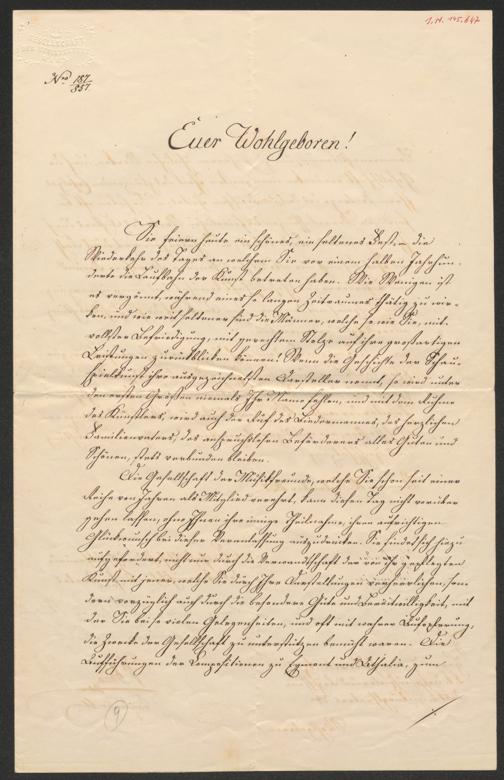 I.N. 145.647
GESELLSCHAFT
Nro 187/857
Euer Wohlgeboren!
Sie feiern heute ein schönes, ein seltenes Fest, – die
Wiederkehr des Tages an welchem Sie vor einem halben Jahrhun-
derte die Laufbahn der Kunst betreten haben. Wie Wenigen ist
es vergönnt, während eines so langen Zeitraumes thätig zu wir-
ken, und wie weit seltener sind die Männer, welche so, wie Sie, mit
vollster Befriedigung, mit gerechtem Stolze auf ihre großartigen
Leistungen zurückblicken können! Wenn die Geschichte der Schau-
spielkunst ihre ausgezeichnetsten Darsteller nennt, so wird unter
den ersten Größten niemals Ihr Name fehlen, und mit dem Ruhme
des Künstlers, wird auch der Ruf des Biedermannes, des herzlichen
Familienvaters, des anspruchslosen Beförderers alles Guten und
Schönen, stets verbunden bleiben.
Die Gesellschaft der Musikfreunde, welche Sie schon seit einer
Reihe von Jahren als Mitglied verehrt, kann diesen Tag nicht vorüber
gehen lassen, ohne Ihnen ihre innige Theilnahme, ihren aufrichtigen
Glückwunsch bei dieser Veranlassung auszudrücken. Sie findet sich hiezu
aufgefordert, nicht nur durch die Verwandtschaft der von ihr gepflegten
Kunst mit jener, welche Sie durch Ihre Darstellungen verherrlichen, son-
dern vorzüglich auch durch die besondere Güte und Bereitwilligkeit, mit
der Sie bei so vielen Gelegenheiten, und oft mit wahrer Aufopferung,
die Zwecke der Gesellschaft zu unterstützen bemüht waren. Die
Aufführungen der Compositionen zu Egmont und Athalia, zum
9